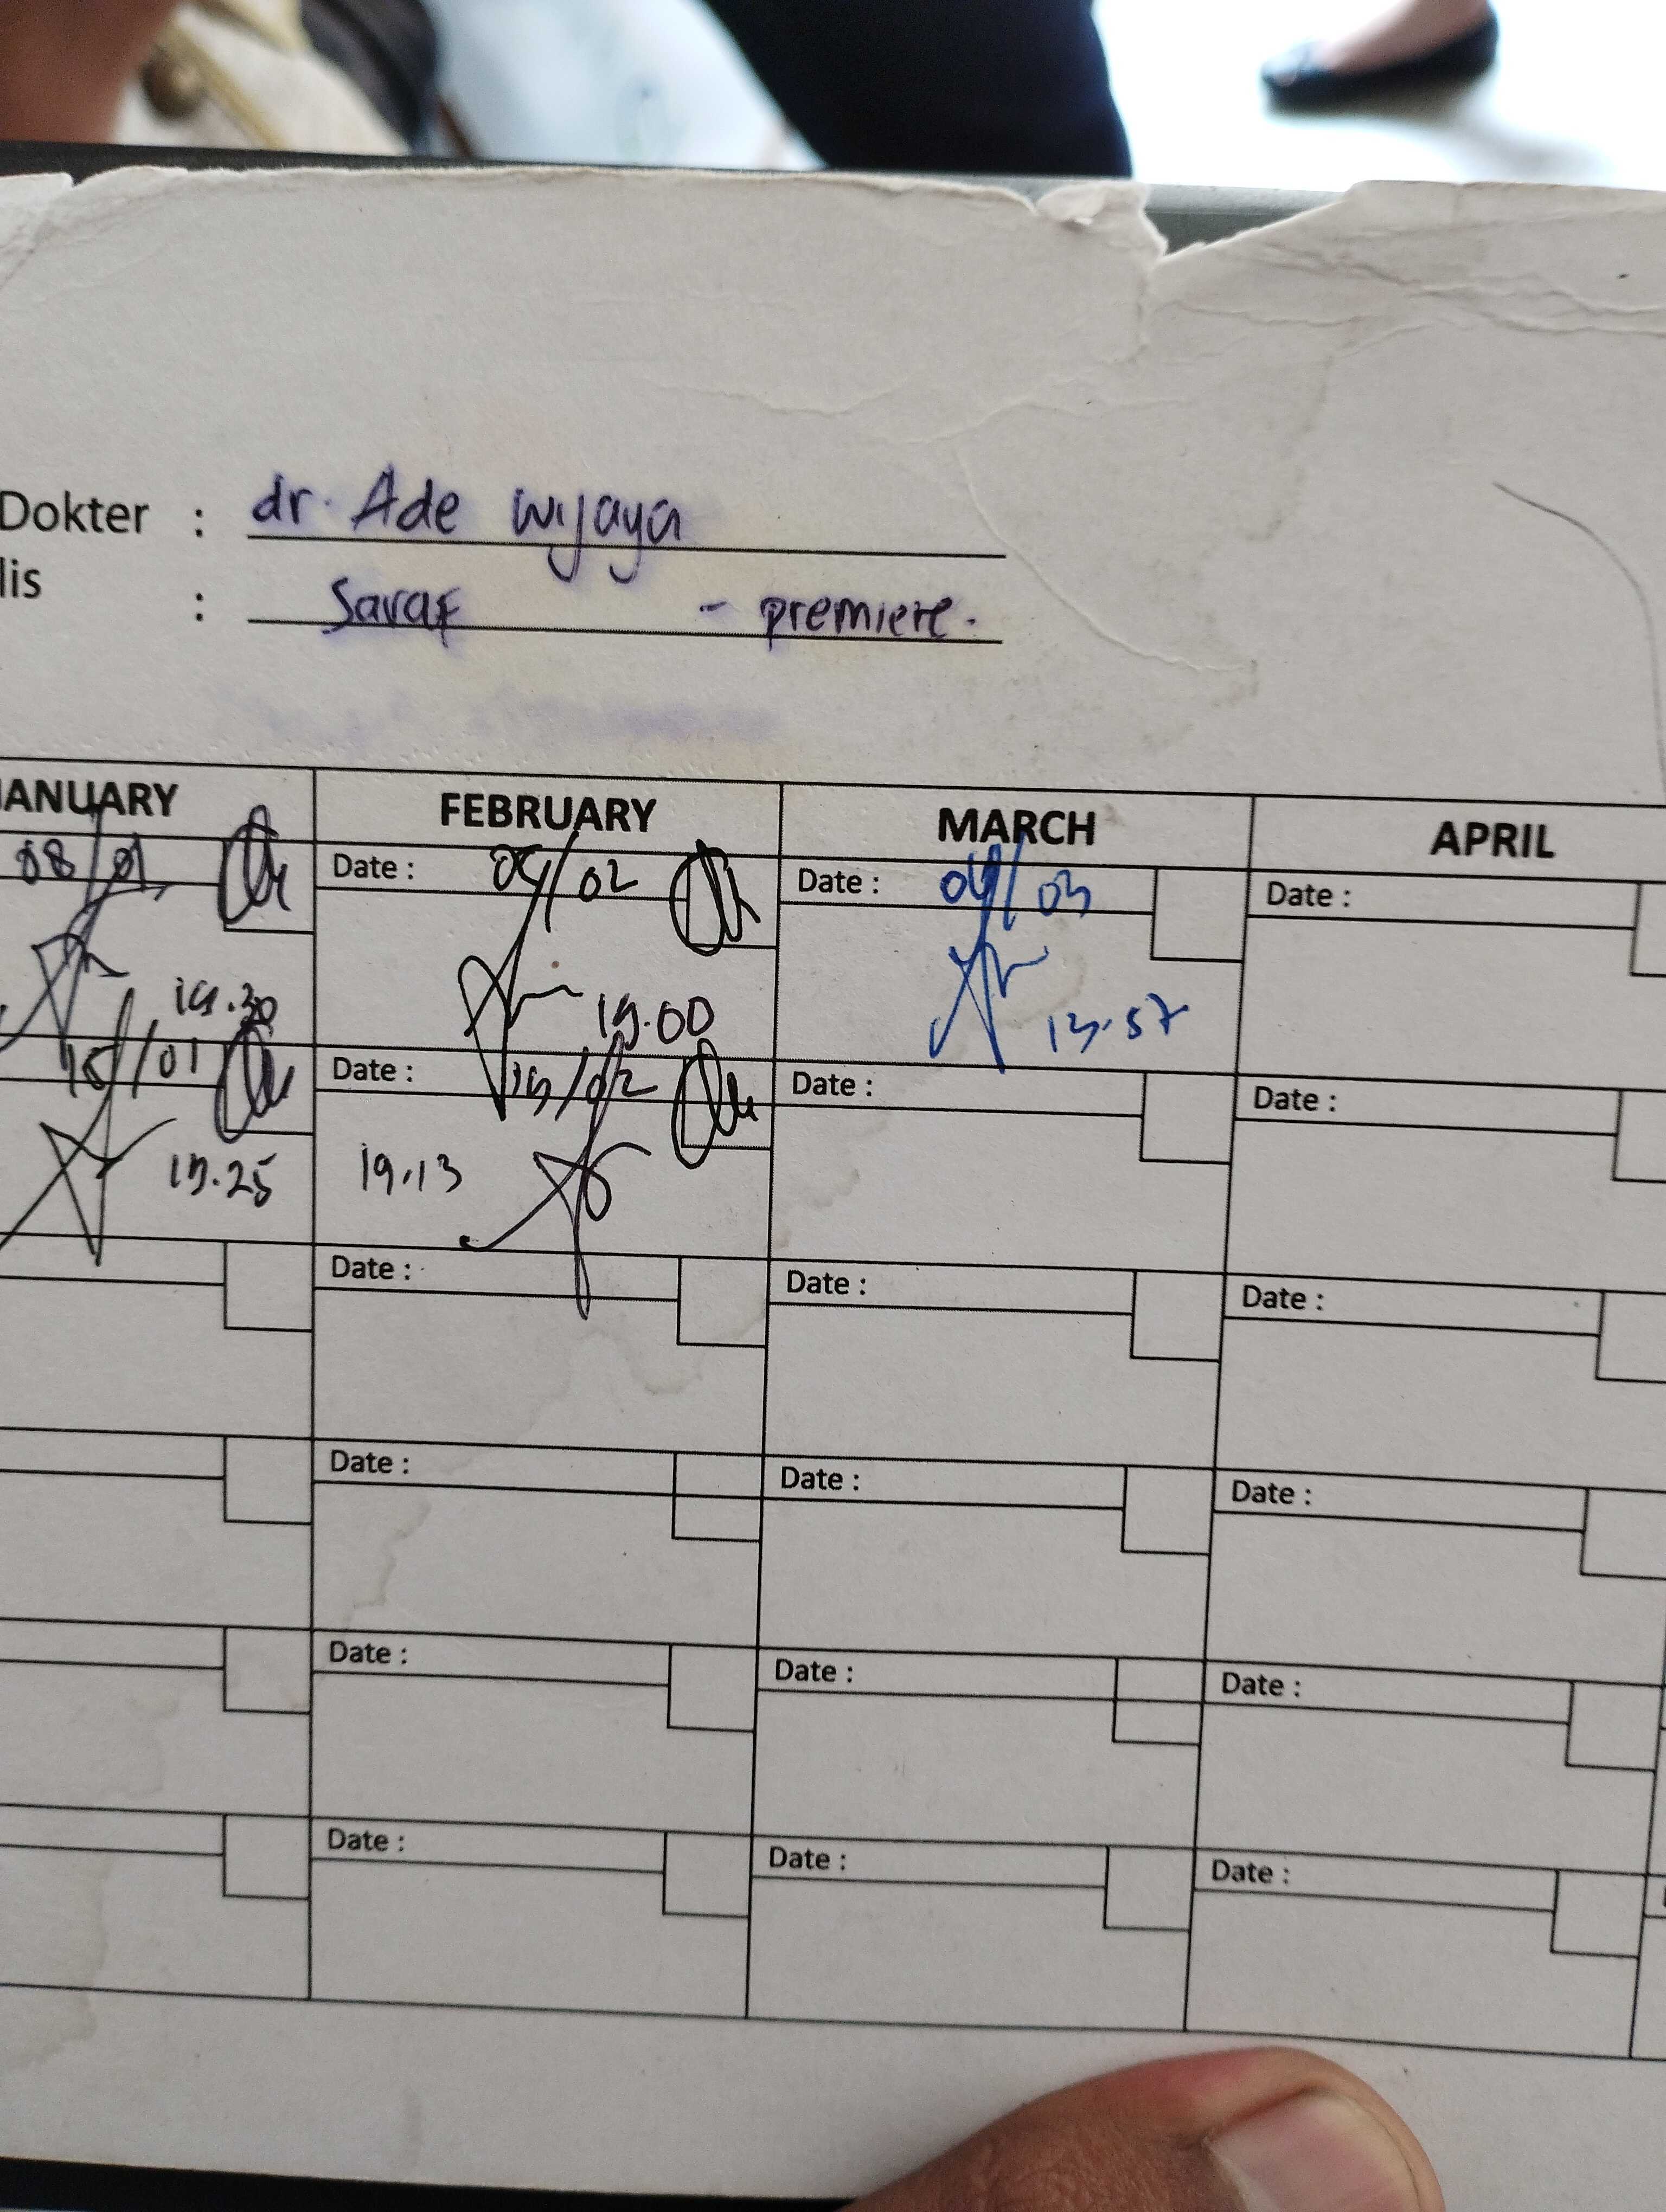 Dokter : dr. Ade wijaya
lis : Saraf - premiere.
JANUARY FEBRUARY MARCH APRIL
08/01 Date : 04/02 Date : 04/03 Date :
19.00 13.57
15/01 Date : /02 Date : Date :
19.25 19.13
Date : Date : Date :
Date : Date : Date :
Date : Date : Date :
Date : Date : Date :